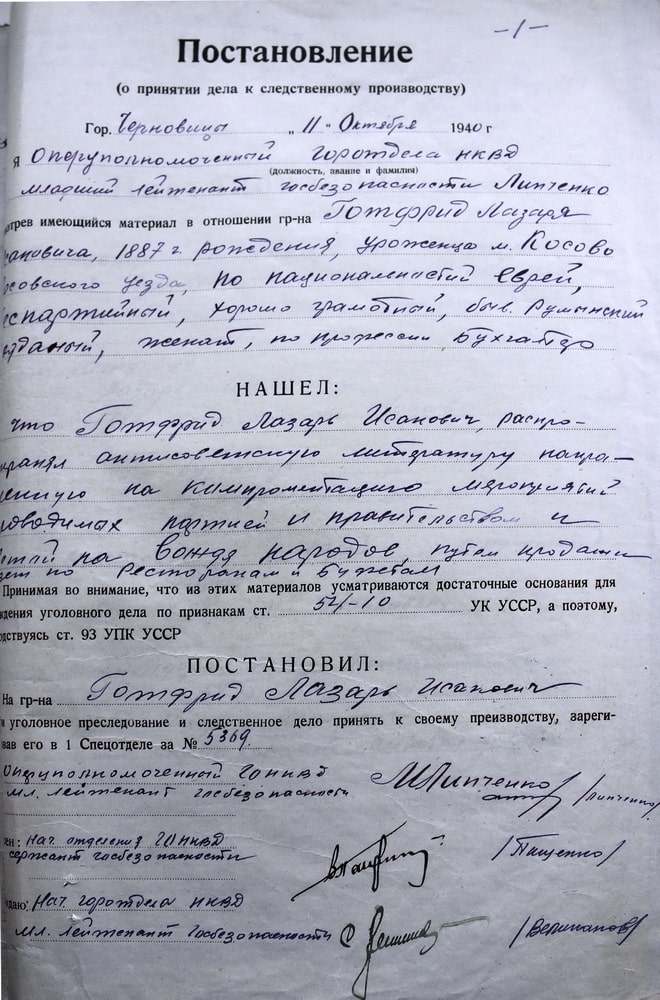 -1-
Постановление
(о принятии дела к следственному производству)
Гор. Черновицы „11" Октября 1940 г
Я Оперуполномоченный горотдела НКВД
(должность, звание и фамилия)
младший лейтенант госбезопасности Липченко
отрев имеющийся материал в отношении гр-на Готфрид Лазаря
ановича, 1887 г. рождения, уроженца м. Косово
осовского уезда, по национальностий еврей,
еспартийный, хорошо грамотный, быв. Румынский
одданый, женат, по профессии Бухгалтер
НАШЕЛ:
что Готфрид Лазарь Исакович, распро-
ранял антисоветскую литературу напра-
енную на компроментацию мероприятий
роводимых партией и правительством и
на Вождя народов, путем продажи
по Ресторанам и Буфетам
Принимая во внимание, что из этих материалов усматриваются достаточные основания для
ждения уголовного дела по признакам ст. 54-10 УК УССР, а поэтому,
одствуясь ст. 93 УПК УССР
ПОСТАНОВИЛ:
На гр-на Готфрид Лазарь Исакович
и уголовное преследование и следственное дело принять к своему преизводству, зареги-
вав его в 1 Спецотделе за № 5369
Оперуполномоченный ГОНКВД
мл. лейтенант госбезопасности МЛипченко /Липченко/
ен: Нач. отделения ГОНКВД
сержант госбезопасности /Пащенко/
ждаю: Нач горотдела НКВД
мл. лейтенант госбезопасности /Великанов/